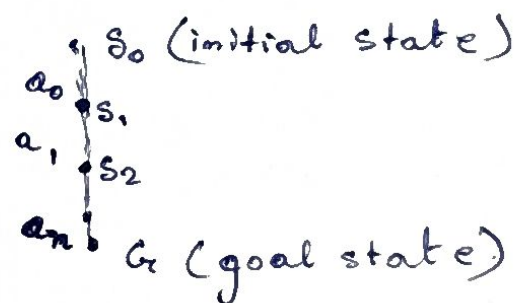 S₀ (initial state)
a₀
S₁
a₁
S₂
aₙ
G (goal state)